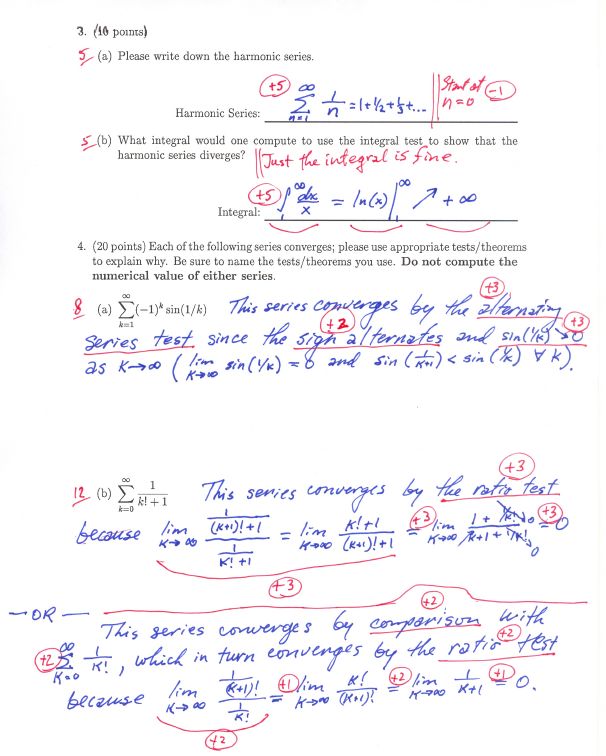 3. (10 points)
5 (a) Please write down the harmonic series.
Harmonic Series: +5 ∑_{n=1}^{∞} 1/n = 1+1/2+1/3+... || Start at n=0 -1
5 (b) What integral would one compute to use the integral test to show that the
harmonic series diverges? || Just the integral is fine.
Integral: +5 ∫^∞ dx/x = ln(x)|^∞ ↗ +∞
4. (20 points) Each of the following series converges; please use appropriate tests/theorems
to explain why. Be sure to name the tests/theorems you use. Do not compute the
numerical value of either series.
8 (a) ∑_{k=1}^{∞} (−1)^k sin(1/k) This series converges by the alternating +3
series test since the sign alternates +2 and sin(1/k) ↘ 0 +3
as K→∞ ( lim_{K→∞} sin(1/K) = 0 and sin(1/(K+1)) < sin(1/K) ∀ K).
12 (b) ∑_{k=0}^{∞} 1/(k!+1) This series converges by the ratio test +3
because lim_{K→∞} (1/((K+1)!+1))/(1/(K!+1)) +3 = lim_{K→∞} (K!+1)/((K+1)!+1) = +3 lim_{K→∞} (1+1/K!)/(K+1+1/K!) = 0 +3
— OR — This series converges by comparison +2 with
+2 ∑_{K=0}^{∞} 1/K!, which in turn converges by the ratio test +2
because lim_{K→∞} (1/(K+1)!)/(1/K!) +2 = +1 lim_{K→∞} K!/(K+1)! = +2 lim_{K→∞} 1/(K+1) = +1 0.